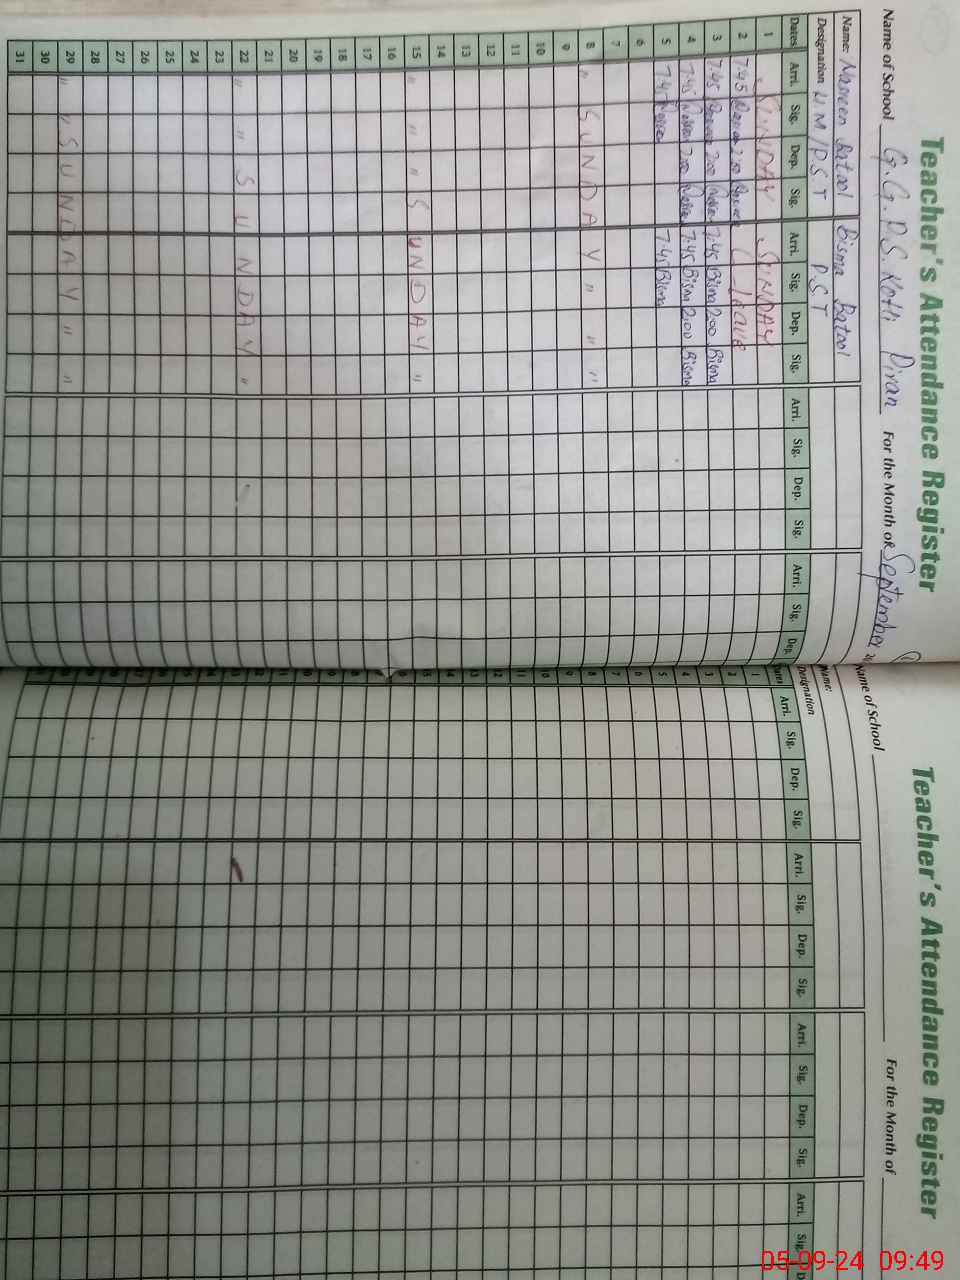 Teacher's Attendance Register
Name of School G.G.P.S. Kotli Piran For the Month of September
Name: Nasreen Batool Bisma Batool
Designation H.M/P.S.T P.S.T
Dates Arri. Sig. Dep. Sig. Arri. Sig. Dep. Sig. Arri. Sig. Dep. Sig. Arri. Sig. Dep.
1 SUNDAY SUNDAY
2 7:45 2:00 C-leave
3 7:45 2:00 7:45 Bisma 2:00 Bisma
4 7:45 2:00 7:45 Bisma 2:00 Bisma
5 7:45 7:45 Bisma
6
7
8 " SUNDAY " " "
9
10
11
12
13
14
15 " " " SUNDAY "
16
17
18
19
20
21
22 " " SUNDAY "
23
24
25
26
27
28
29 " " SUNDAY " "
30
31
Teacher's Attendance Register
Name of School For the Month of
Name:
Designation
Dates Arri. Sig. Dep. Sig. Arri. Sig. Dep. Sig. Arri. Sig. Dep. Sig. Arri. Sig. D
1
2
3
4
5
6
7
8
9
10
11
12
13
05-09-24 09:49